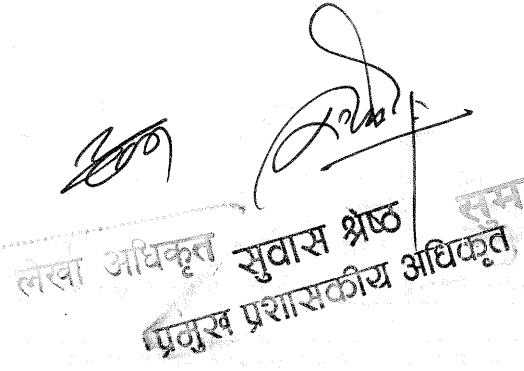 लेखा अधिकृत सुवास श्रेष्ठ सुम
प्रमुख प्रशासकीय अधिकृत